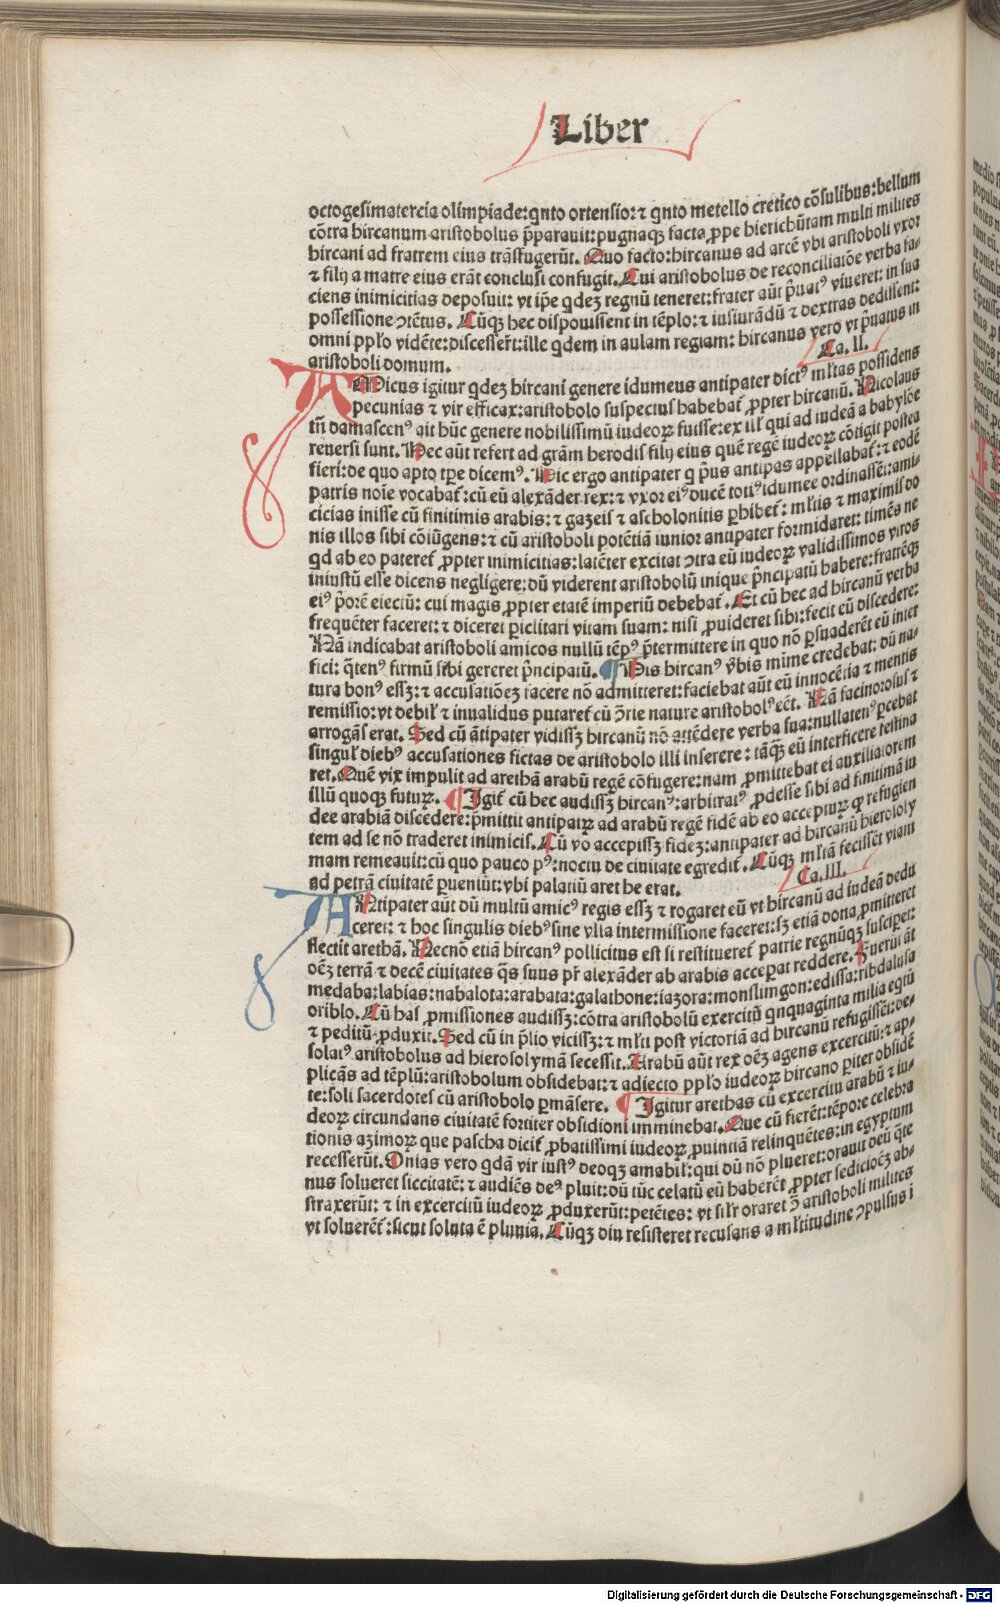 Liber
octogesimatercia olimpiade:qnto ortensio:⁊ qnto metello cretico cõsulibus:bellum
cõtra hircanum aristobolus p̃parauit:pugnaqꝫ facta ꝓpe hierichũtam multi milites
hircani ad fratrem eius trãsfugerũt. Quo facto:hircanus ad arcẽ vbi aristoboli vxor
⁊ filij a matre eius erãt conclusi confugit. Cui aristobolus de reconciliatiõe verba fa-
ciens inimicitias deposuit: vt ip̃e qdeꝫ regnũ teneret:frater aũt p̃uatꝰ viueret: in sua
possessione ↄtẽtus. Cũqꝫ hec disposuissent in tẽplo:⁊ iusiurãdũ ⁊ dextras dedissent:
omni pp̃lo vidẽte:discesser̃t:ille qdem in aulam regiam: hircanus vero vt p̃uatus in
aristoboli domum.
Ca. II.
AMicus igitur qdeꝫ hircani genere idumeus antipater dictꝰ ml̃tas possidens
pecunias ⁊ vir efficax:aristobolo suspectus habebat̃ ꝓpter hircanũ. Nicolaus
tñ damascenꝰ ait hũc genere nobilissimũ iudeoꝝ fuisse:ex ill̃ qui ad iudeã a babylõe
reuersi sunt. Hec aũt refert ad grãm herodis filij eius quẽ regẽ iudeoꝝ cõtigit postea
fieri:de quo apto tp̃e dicemꝰ. Hic ergo antipater q p̃us antipas appellabat̃: ⁊ eodẽ
patris noĩe vocabat̃: cũ eũ alexãder rex: ⁊ vxor eiꝰ ducẽ totiꝰ idumee ordinassẽt: ami-
cicias inisse cũ finitimis arabis: ⁊ gazeis ⁊ ascholonitis ꝑhibet̃: ml̃tis ⁊ maximis do
nis illos sibi cõiũgens:⁊ cũ aristoboli potẽtiã iunior antipater formidaret: timẽs ne
qd ab eo pateret̃ ꝓpter inimicitias: latẽter excitat ↄtra eũ iudeoꝝ validissimos viros
iniustũ esse dicens negligere:dũ viderent aristobolũ inique p̃ncipatũ habere:fratrẽqꝫ
eiꝰ p̃orẽ eiectũ: cui magis ꝓpter etatẽ imperiũ debebat̃. Et cũ hec ad hircanũ verba
frequẽter faceret: ⁊ diceret ꝑiclitari vitam suam: nisi ꝓuideret sibi:fecit cũ discedere:
Nã indicabat aristoboli amicos nullũ tẽpꝰ p̃termittere in quo nõ ꝑsuaderẽt eũ inter
fici: q̃tenꝰ firmũ sibi gereret p̃ncipatũ. ¶ His hircanꝰ v̉bis mĩme credebat: dũ na-
tura bonꝰ essꝫ:⁊ accusatiõeꝫ facere nõ admitteret:faciebat aũt eũ innocẽtia ⁊ mentis
remissio:vt debil̃ ⁊ inualidus putaret̃ cũ ↄ̃rie nature aristobolꝰ eẽt. Nã facino:osus ⁊
arrogãs erat. Sed cũ ãtipater vidissꝫ hircanũ nõ attẽdere verba sua:nullatenꝰ ꝑcebat
singul̃ diebꝰ accusationes fictas de aristobolo illi inserere: tãq̃ eũ interficere festina
ret. Quẽ vix impulit ad arethã arabũ regẽ cõfugere:nam ꝓmittebat ei auxiliatorem
illũ quoqꝫ futuꝝ. ¶ Igit̃ cũ hec audissꝫ hircanꝰ:arbitratꝰ ꝓdesse sibi ad finitimã iu
dee arabiã discedere:p̃mittit antipatꝝ ad arabũ regẽ fidẽ ab eo acceptuꝝ ꝙ refugien
tem ad se nõ traderet inimicis. Cũ v̉o accepissꝫ fideꝫ:antipater ad hircanũ hierosoly
mam remeauit:cũ quo pauco pꝰ:noctu de ciuitate egredit̃. Cũqꝫ ml̃tã fecissẽt viam
ad petrã ciuitatẽ ꝑueniũt:vbi palatiũ arethe erat.
Ca. III.
ANtipater aũt dũ multũ amicꝰ regis essꝫ ⁊ rogaret eũ vt hircanũ ad iudeã dedu
ceret: ⁊ hoc singulis diebꝰ sine vlla intermissione faceret:sꝫ etiã dona ꝓmitteret
flectit arethã. Necnõ etiã hircanꝰ pollicitus est si restitueret̃ patrie regnũqꝫ susciper̃:
oẽꝫ terrã ⁊ decẽ ciuitates q̃s suus pr̃ alexãder ab arabis acceꝑat reddere. Fuerũt ãt
medaba:labias:nabalota:arabata:galathone:iazora:monslimgon:edissa:ribdalusa
oriblo. Cũ has ꝓmissiones audissꝫ:cõtra aristobolũ exercitũ qnquaginta milia eqtũ
⁊ peditũ ꝓduxit. Sed cũ in p̃lio vicissꝫ:⁊ ml̃ti post victoriã ad hircanũ refugissẽt:de-
solatꝰ aristobolus ad hierosolymã secessit. Arabũ aũt rex oẽꝫ agens excercitũ:⁊ ap-
plicãs ad tẽplũ:aristobolum obsidebat:⁊ adiecto pp̃lo iudeoꝝ hircano ꝑiter obsidẽ
te:soli sacerdotes cũ aristobolo ꝑmãsere. ¶ Igitur arethas cũ excercitu arabũ ⁊ iu-
deoꝝ circundans ciuitatẽ fortiter obsidioni imminebat. Que cũ fierẽt:tẽpore celebra
tionis azimoꝝ que pascha dicit̃ ꝓbatissimi iudeoꝝ ꝓuintiã relinquẽtes:in egyptum
recesserũt. Onias vero qdã vir iustꝰ deoqꝫ amabil̃:qui dũ nõ plueret:orauit deũ q̃te
nus solueret siccitatẽ:⁊ audiẽs deꝰ pluit:dũ tũc celatũ eũ haberẽt ꝓpter sedicioẽꝫ ab-
straxerũt: ⁊ in excercitũ iudeoꝝ ꝓduxerũt:petẽtes: vt sil̃r oraret ↄ̃ aristoboli milites
vt solueret̃:sicut soluta ẽ pluuia. Cũqꝫ diu resisteret recusans a ml̃titudine ↄpulsus ĩ
Digitalisierung gefördert durch die Deutsche Forschungsgemeinschaft - DFG